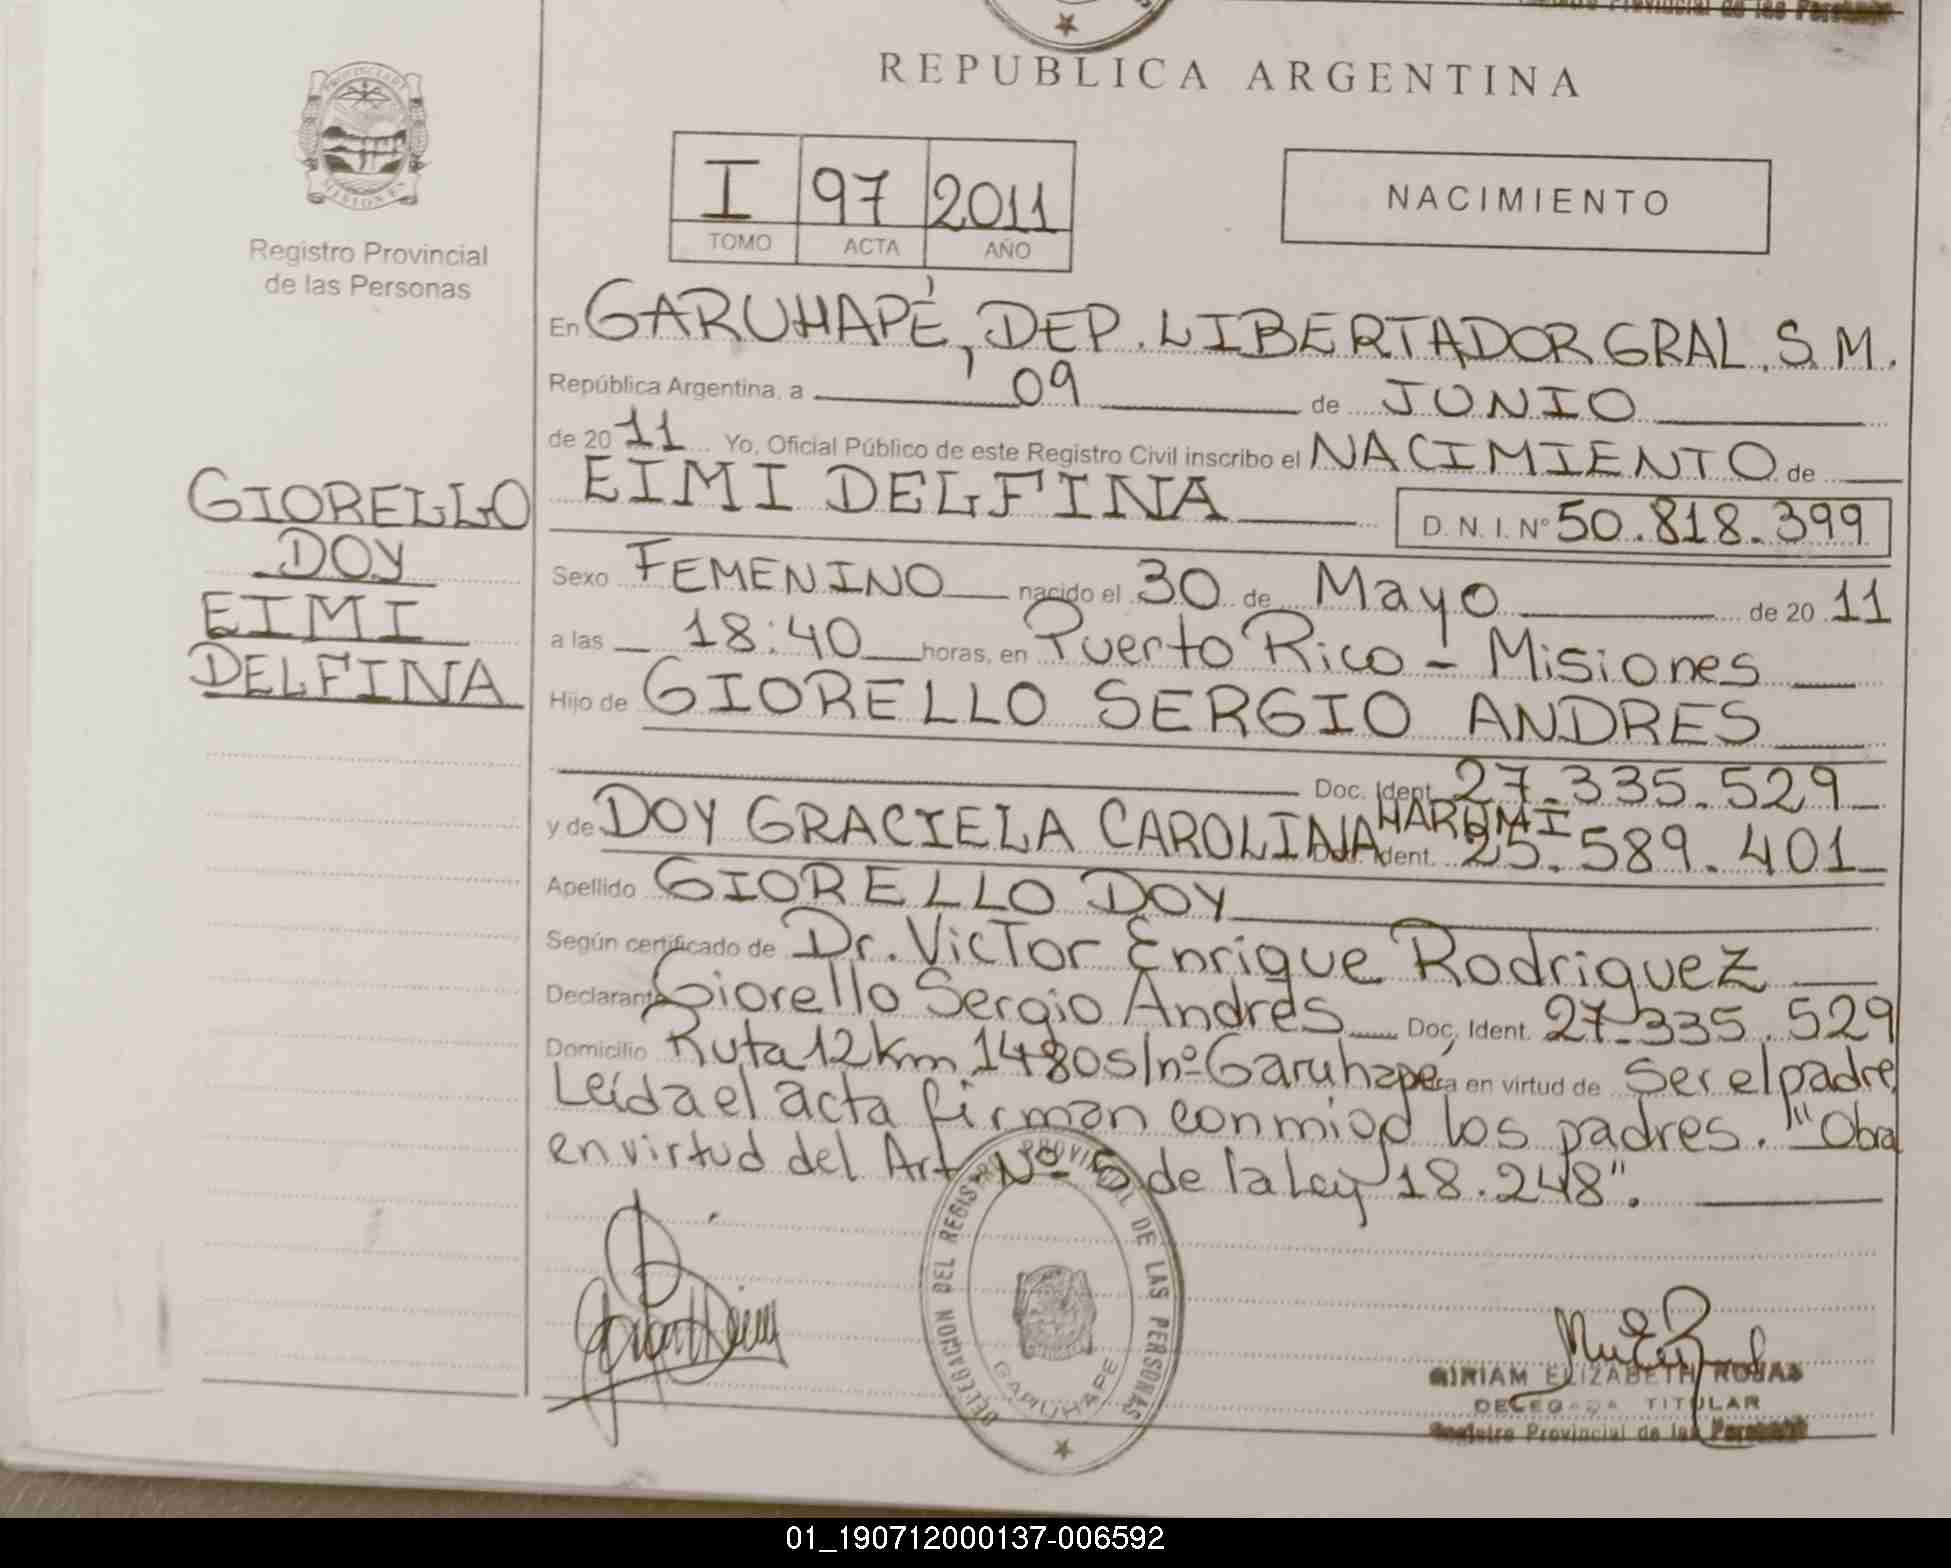 REPUBLICA ARGENTINA
Registro Provincial
de las Personas
I 97 2011
TOMO ACTA AÑO
NACIMIENTO
En GARUHAPÉ, DEP. LIBERTADOR GRAL. S.M.
República Argentina, a 09 de JUNIO
de 2011 Yo, Oficial Público de este Registro Civil inscribo el NACIMIENTO de
EIMI DELFINA D.N.I. Nº 50.818.399
GIORELLO
DOY
EIMI
DELFINA
Sexo FEMENINO nacido el 30 de Mayo de 2011
a las 18:40 horas, en Puerto Rico - Misiones
Hijo de GIORELLO SERGIO ANDRES
Doc. Ident. 27.335.529
y de DOY GRACIELA CAROLINA HARUMI Doc. Ident. 25.589.401
Apellido GIORELLO DOY
Según certificado de Dr. Victor Enrique Rodriguez
Declarante Giorello Sergio Andrés Doc. Ident. 27.335.529
Domicilio Ruta 12 km 1480 s/nº Garuhapé en virtud de Ser el padre
Leída el acta firman conmigo los padres. "Obra
en virtud del Art Nº 5 de la Ley 18.248".
DELEGACION DEL REGISTRO PROVINCIAL DE LAS PERSONAS
GARUHAPE
MIRIAM ELIZABETH ROJAS
DELEGADA TITULAR
Registro Provincial de las Personas
01_190712000137-006592